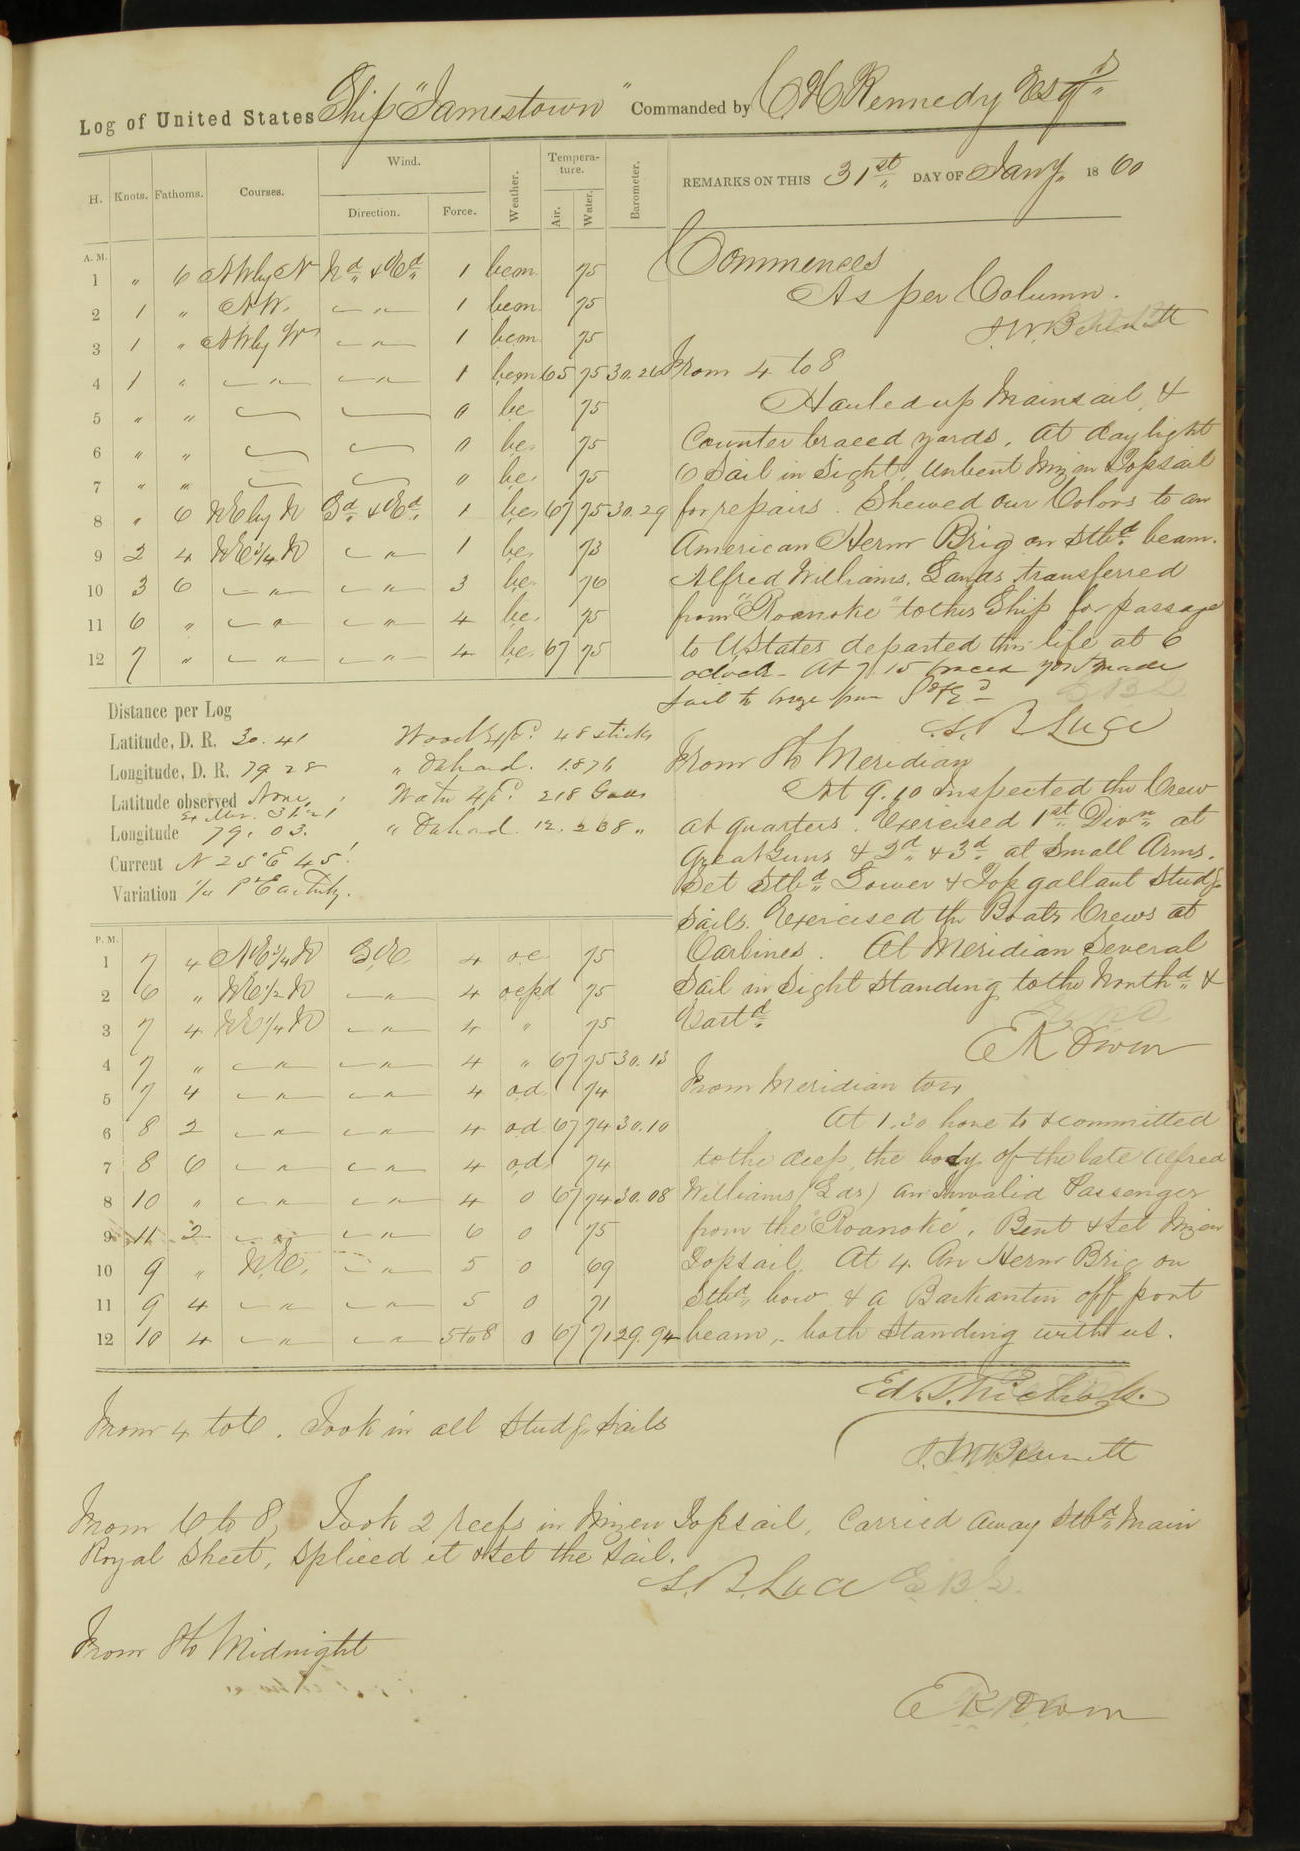 Log of United States Ship "Jamestown" Commanded by C H Kennedy Esqr
H. Knots. Fathoms. Courses. Wind. Direction. Force. Weather. Temperature. Air. Water. Barometer.
REMARKS ON THIS 31st DAY OF Jany 1860
A. M.
1 " 6 NW by N Nd & Ed 1 bcm 75
2 1 " NW. " 1 bcm 75
3 1 " NW by W " 1 bcm 75
4 1 " " " 1 bcm 65 75 30.26
5 " " 0 bc 75
6 " " 0 bc 75
7 " " " bc 75
8 " 6 NE by N Sd & Ed 1 bc 67 75 30.29
9 2 4 NE 3/4 N " 1 bc 73
10 3 6 " " 3 bc 76
11 6 " " " 4 bc 75
12 7 " " " 4 bc 67 75
Commences
As per Column.
J. W. Bennett
From 4 to 8
Hauled up Mainsail, &
Counter braced yards. At daylight
6 Sail in Sight. Unbent Mizen Topsail
for repairs. Shewed our Colors to an
American Herm Brig on Stbd beam.
Alfred Williams, Lands, transferred
from "Roanoke" to this Ship for passage
to U States departed this life at 6
oclock - At 7.15 braced yards made
sail to breeze from Sd & Ed
S. B. Luce
From 8 to Meridian
At 9.10 inspected the Crew
at quarters. Exercised 1st Divn at
Great Guns & 2d & 3d at Small Arms.
Set Stbd Lower & Topgallant Studg
Sails. Exercised the Boats Crews at
Carbines. At Meridian Several
Sail in Sight Standing to the Northd &
Eastd
E K Owen
Distance per Log
Latitude, D. R. 30.41
Longitude, D. R. 79 28
Latitude observed None
Longitude 79. 03.
Current N 25° E 45'
Variation 1/4 Pt Easterly.
Wood Expd. 48 sticks
" On hand. 1.876
Water Expd. 218 Galls
" On hand. 12.268 "
P. M.
1 7 4 NE 3/4 N S.E. 4 oc 75
2 6 " NE 1/2 N " 4 ocpd 75
3 7 4 NE 1/4 N " 4 " 75
4 7 " " " 4 " 67 75 30.13
5 7 4 " " 4 od 74
6 8 2 " " 4 od 67 74 30.10
7 8 6 " " 4 od 74
8 10 " " " 4 o 67 74 30.08
9 11 2 " " 6 o 75
10 9 " NE. " 5 o 69
11 9 4 " " 5 o 71
12 10 4 " " 5 to 8 o 67 71 29.94
From Meridian to 4
At 1.30 hove to & committed
to the deep, the body of the late Alfred
Williams (Lds) an Invalid Passenger
from the "Roanoke". Bent & set Mizen
Topsail. At 4. An Herm Brig on
Stbd bow & a Barkantin off port
beam, - both standing with us.
Ed. T. Nichols.
From 4 to 6. Took in all Studg Sails
J. W. Bennett
From 6 to 8, Took 2 reefs in Mizen Topsail, Carried away Stbd Main
Royal Sheet, Spliced it & set the Sail.
S. B. Luce
From 8 to Midnight
E K Owen